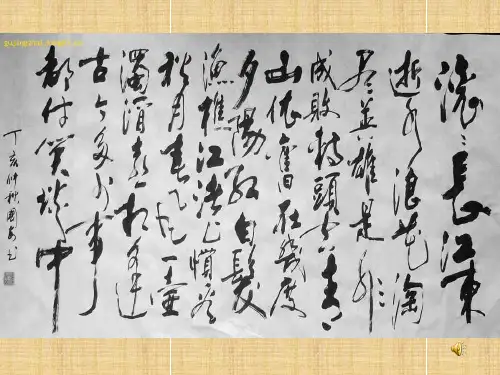 滚滚長江東
逝水浪花淘
尽英雄是非
成敗转頭空青
山依舊在幾度
夕陽红白髮
漁樵江渚上慣看
秋月春风一壶
濁酒喜相逢
古今多少事
都付笑谈中
丁亥仲秋